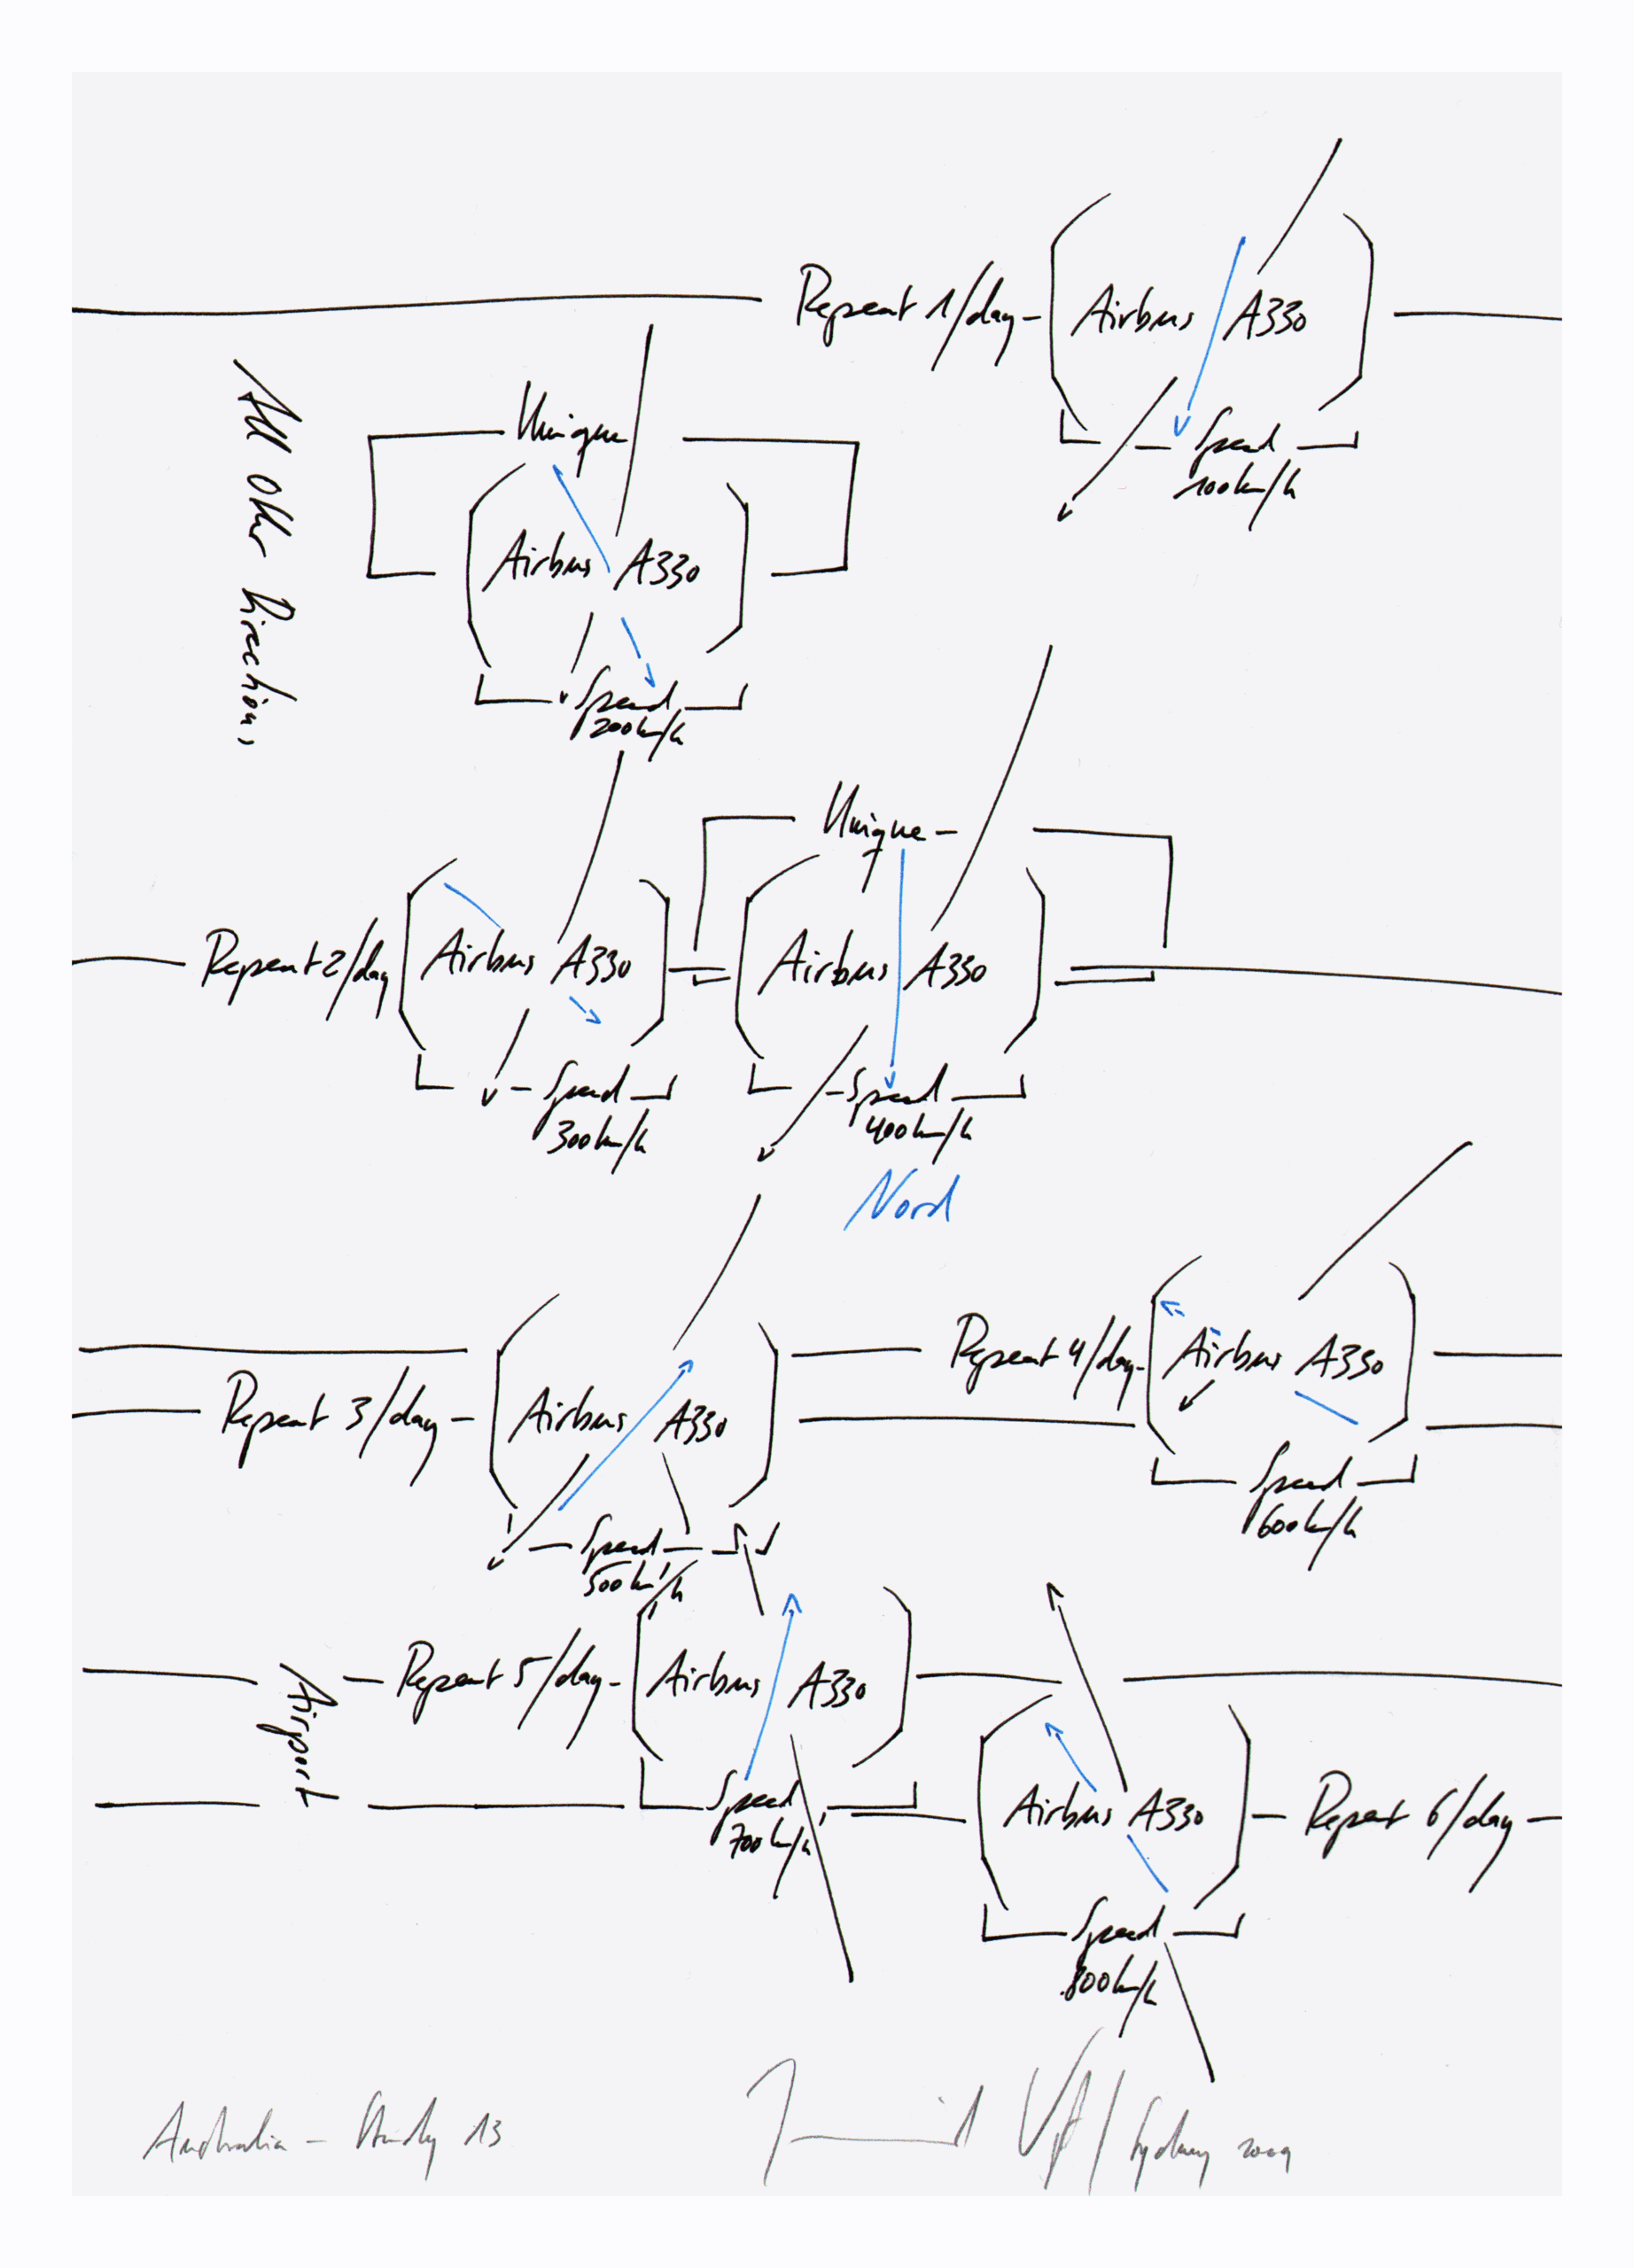 Repeat 1/day - Airbus A330
Speed
100km/h
All Other Direction,
Unique
Airbus A330
Speed
200km/h
Repeat 2/day Airbus A330
Speed
300km/h
Unique
Airbus A330
Speed
400km/h
Nord
Repeat 3/day - Airbus A330
Speed
500km/h
Repeat 4/day - Airbus A330
Speed
600km/h
Airport
Repeat 5/day - Airbus A330
Speed
700km/h
Airbus A330 - Repeat 6/day -
Speed
800km/h
Australia - Study 13
Sydney 2009